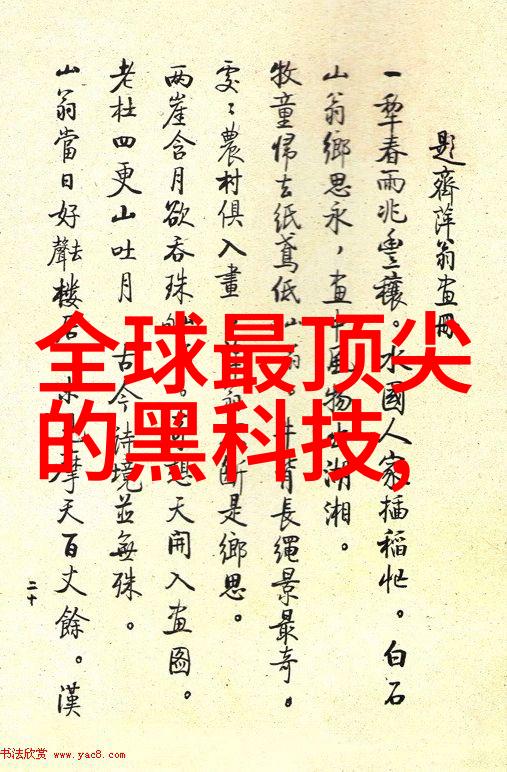 題齊萍翁画冊
一犂春雨兆豐穰。水國人家插稻忙。白石
山翁鄉思永,画中風物湖湘。
牧童歸去紙鳶低山翁。牛背長繩景最奇。
處〻農村俱入畫斷是鄉思。
兩崖含月欲吞珠想天開入画圖。
老杜四更山吐月古今詩境並無殊。
山翁當日好聲去樓居摩天百丈餘。漢
二十
全球最顶尖
的黑科技,
书法欣赏 www.yac8.com